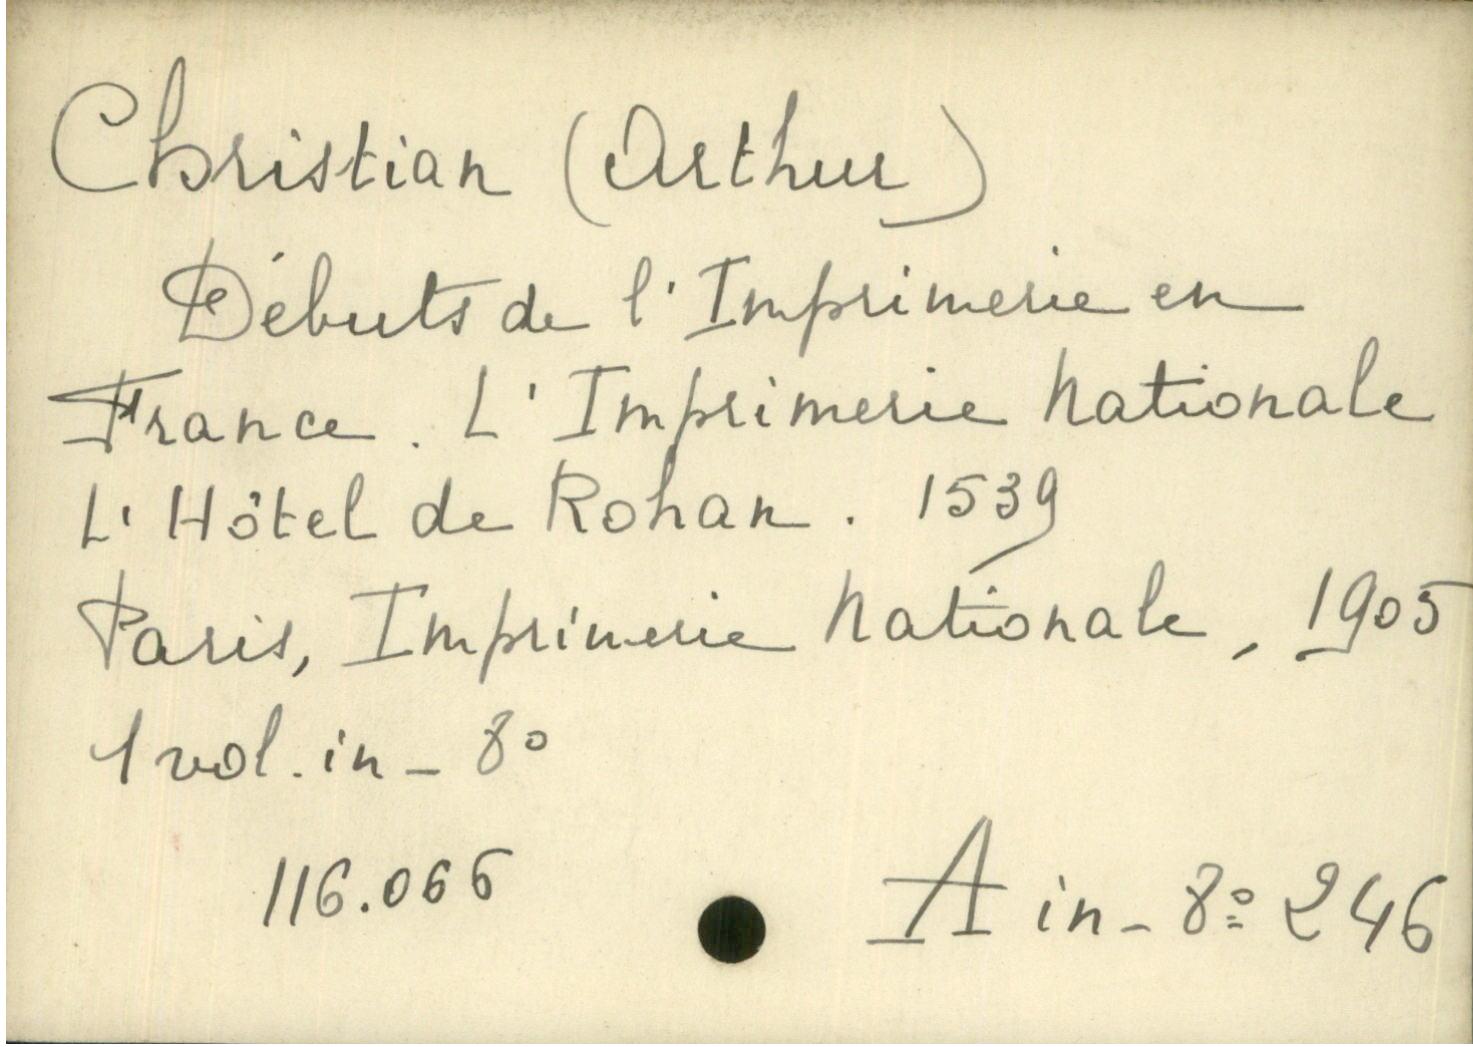 Christian (Arthur)
Débuts de l'Imprimerie en
France. L'Imprimerie Nationale
L'Hôtel de Rohan. 1539
Paris, Imprimerie Nationale, 1905
1 vol. in-8°
116.066
A in-8° 246